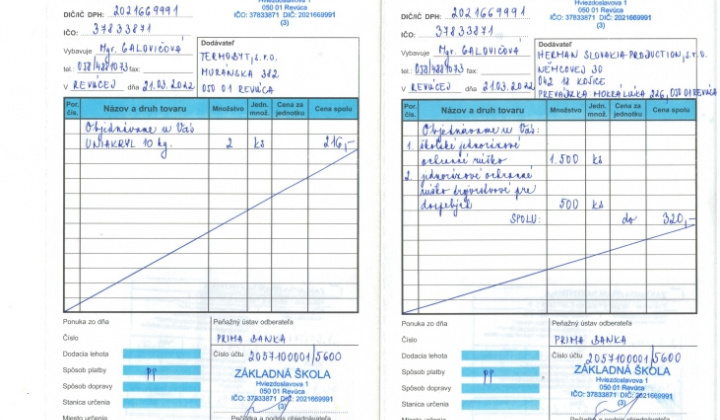 DIČ/IČ DPH: 2021669991
IČO: 37833871
Vybavuje Mgr. GALOVIČOVÁ
tel.: 058/4881073 fax:
V REVÚCEJ dňa 21.03.2022
Hviezdoslavova 1
050 01 Revúca
IČO: 37833871 DIČ: 2021669991
(3)
Dodávateľ
TERMOBYT, s.r.o.
MURÁNSKA 382
050 01 REVÚCA
Por. čís. Názov a druh tovaru Množstvo Jedn. množ. Cena za jednotku Cena spolu
Objednávame u Vás
UNIAKRYL 10 kg. 2 ks 216,-
Ponuka zo dňa
Číslo
Dodacia lehota
Spôsob platby PP
Spôsob dopravy
Stanica určenia
Miesto určenia
Peňažný ústav odberateľa
PRIMA BANKA
Číslo účtu 2057100001/5600
ZÁKLADNÁ ŠKOLA
Hviezdoslavova 1
050 01 Revúca
IČO: 37833871 DIČ: 2021669991
(3)
Pečiatka a podpis objednávateľa
DIČ/IČ DPH: 2021669991
IČO: 37833871
Vybavuje Mgr. GALOVIČOVÁ
tel.: 058/4881073 fax:
V REVÚCEJ dňa 21.03.2022
Hviezdoslavova 1
050 01 Revúca
IČO: 37833871 DIČ: 2021669991
(3)
Dodávateľ
HERMAN SLOVAKIA PRODUCTION, s.r.o.
NĚMCOVEJ 30
042 18 KOŠICE
PREVÁDZKA MOKRÁ LÚKA 226, 050 01 REVÚCA
Por. čís. Názov a druh tovaru Množstvo Jedn. množ. Cena za jednotku Cena spolu
Objednávame u Vás:
1. školské jednorázové
ochranné rúško 1.500 ks
2. jednorázové ochranné
rúško trojvrstvové pre
dospelých 500 ks
SPOLU: do 320,-
Ponuka zo dňa
Číslo
Dodacia lehota
Spôsob platby PP
Spôsob dopravy
Stanica určenia
Miesto určenia
Peňažný ústav odberateľa
PRIMA BANKA
Číslo účtu 2057100001/5600
ZÁKLADNÁ ŠKOLA
Hviezdoslavova 1
050 01 Revúca
IČO: 37833871 DIČ: 2021669991
(3)
Pečiatka a podpis objednávateľa